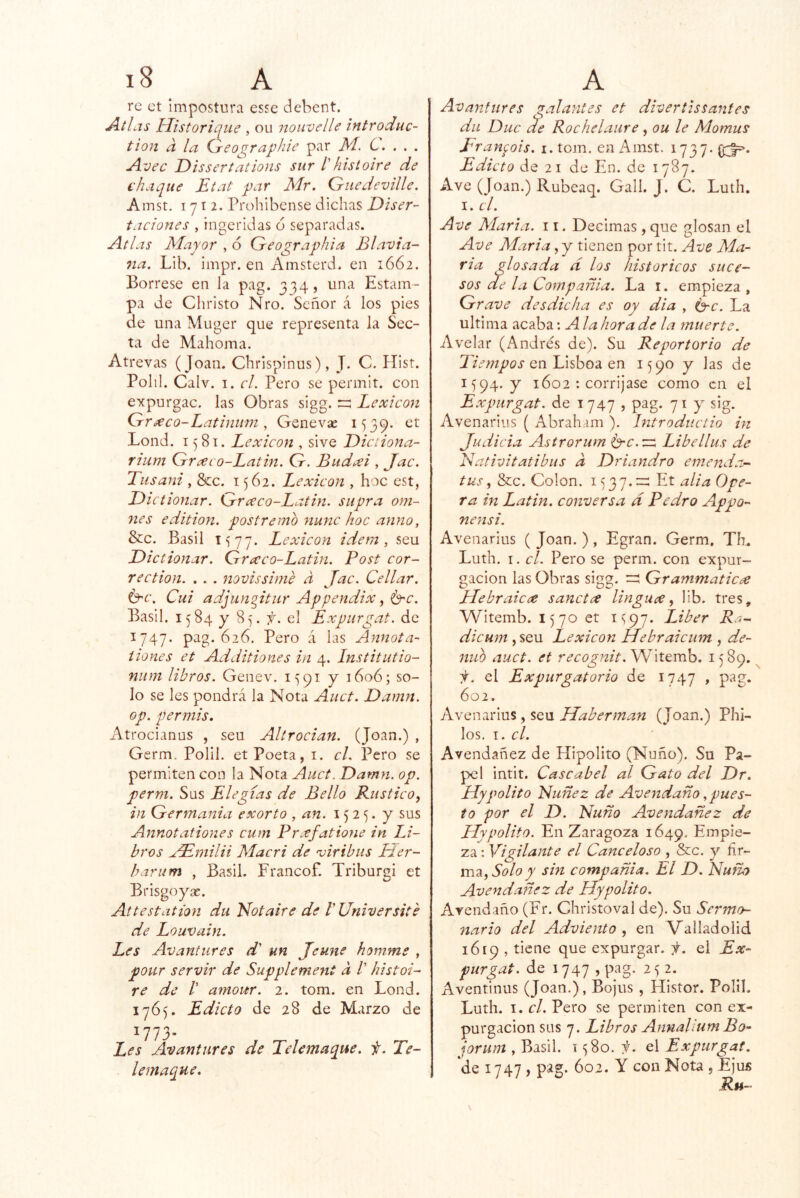 18 A
re et impostura esse debent.
Atlas Historique , ou nouvelle introduc-
tion à la Geographie par M. C. . . .
Avec Dissertations sur l'histoire de
chaque Etat par Mr. Guedeville.
Amst. 1712. Prohibense dichas Diser-
taciones , ingeridas ó separadas.
Atlas Mayor , ó Geographia Blavia-
na. Lib. impr. en Amsterd. en 1662.
Borrese en la pag. 334, una Estam-
pa de Christo Nro. Señor á los pies
de una Muger que representa la Sec-
ta de Mahoma.
Atrevas (Joan. Chrispinus), J. C. Hist.
Polil. Calv. 1. cl. Pero se permit. con
expurgac. las Obras sigg. = Lexicon
Græco-Latinum , Genevæ 1539. et
Lond. 1581. Lexicon , sive Dictiona-
rium Græco-Latin. G. Budæi , Jac.
Tusani , &c. 1562. Lexicon , hoc est,
Dictionar. Græco-Latin. supra om-
nes edition. postremò nunc hoc anno,
&c. Basil 1577. Lexicon idem , seu
Dictionar. Græco-Latin. Post cor-
rection. . . . novissimè à Jac. Cellar.
&c. Cui adjungitur Appendix, &c.
Basil. 1584 y 85. ɏ. el Expurgat. de
1747. pag. 626. Pero á las Annota-
tiones et Additiones in 4. Institutio-
num libros. Genev. 1591 y 1606; so-
lo se les pondrá la Nota Auct. Damn.
op. permis.
Atrocianus , seu Altrocian. (Joan.) ,
Germ. Polil. et Poeta, 1. cl. Pero se
permiten con la Nota Auct. Damn. op.
perm. Sus Elegías de Bello Rustico,
in Germania exorto , an. 1525. y sus
Annotationes cum Præfatione in Li-
bros Æmilii Macri de viribus Her-
barum , Basil. Francof. Triburgi et
Brisgoyæ.
Attestation du Notaire de l'Universitè
de Louvain.
Les Avantures d' un Jeune homme ,
pour servir de Supplement à l' histoi-
re de l' amour. 2. tom. en Lond.
1765. Edicto de 28 de Marzo de
1773.
Les Avantures de Telemaque. ɏ. Te-
lemaque.
A
Avantures galantes et divertissantes
du Duc de Rochelaure , ou le Momus
François. 1. tom. en Amst. 1737. ☞.
Edicto de 21 de En. de 1787.
Ave (Joan.) Rubeaq. Gall. J. C. Luth.
1. cl.
Ave Maria. 11. Decimas , que glosan el
Ave Maria , y tienen por tit. Ave Ma-
ria glosada á los historicos suce-
sos de la Compañia. La 1. empieza ,
Grave desdicha es oy dia , &c. La
ultima acaba : A la hora de la muerte.
Avelar (Andrés de). Su Reportorio de
Tiempos en Lisboa en 1590 y las de
1594. y 1602 : corrijase como en el
Expurgat. de 1747 , pag. 71 y sig.
Avenarius ( Abraham ). Introductio in
Judicia Astrorum &c. = Libellus de
Nativitatibus à Driandro emenda-
tus , &c. Colon. 1537. = Et alia Ope-
ra in Latin. conversa á Pedro Appo-
nensi.
Avenarius ( Joan. ) , Egran. Germ. Th.
Luth. 1. cl. Pero se perm. con expur-
gacion las Obras sigg. = Grammaticæ
Hebraicæ sanctæ linguæ, lib. tres,
Witemb. 1570 et 1597. Liber Ra-
dicum , seu Lexicon Hebraicum , de-
nuò auct. et recognit. Witemb. 1589.
ɏ. el Expurgatorio de 1747 , pag.
602.
Avenarius , seu Haberman (Joan.) Phi-
los. 1. cl.
Avendañez de Hipolito (Nuño). Su Pa-
pel intit. Cascabel al Gato del Dr.
Hypolito Nuñez de Avendaño , pues-
to por el D. Nuño Avendañez de
Hypolito. En Zaragoza 1649. Empie-
za : Vigilante el Canceloso , &c. y fir-
ma, Solo y sin compañia. El D. Nuño
Avendañez de Hypolito.
Avendaño (Fr. Christoval de). Su Sermo-
nario del Adviento , en Valladolid
1619 , tiene que expurgar. ɏ. el Ex-
purgat. de 1747 , pag. 252.
Aventinus (Joan.), Bojus , Histor. Polil.
Luth. 1. cl. Pero se permiten con ex-
purgacion sus 7. Libros Annalium Bo-
jorum , Basil. 1580. ɏ. el Expurgat.
de 1747 , pag. 602. Y con Nota , Ejus
Ru-